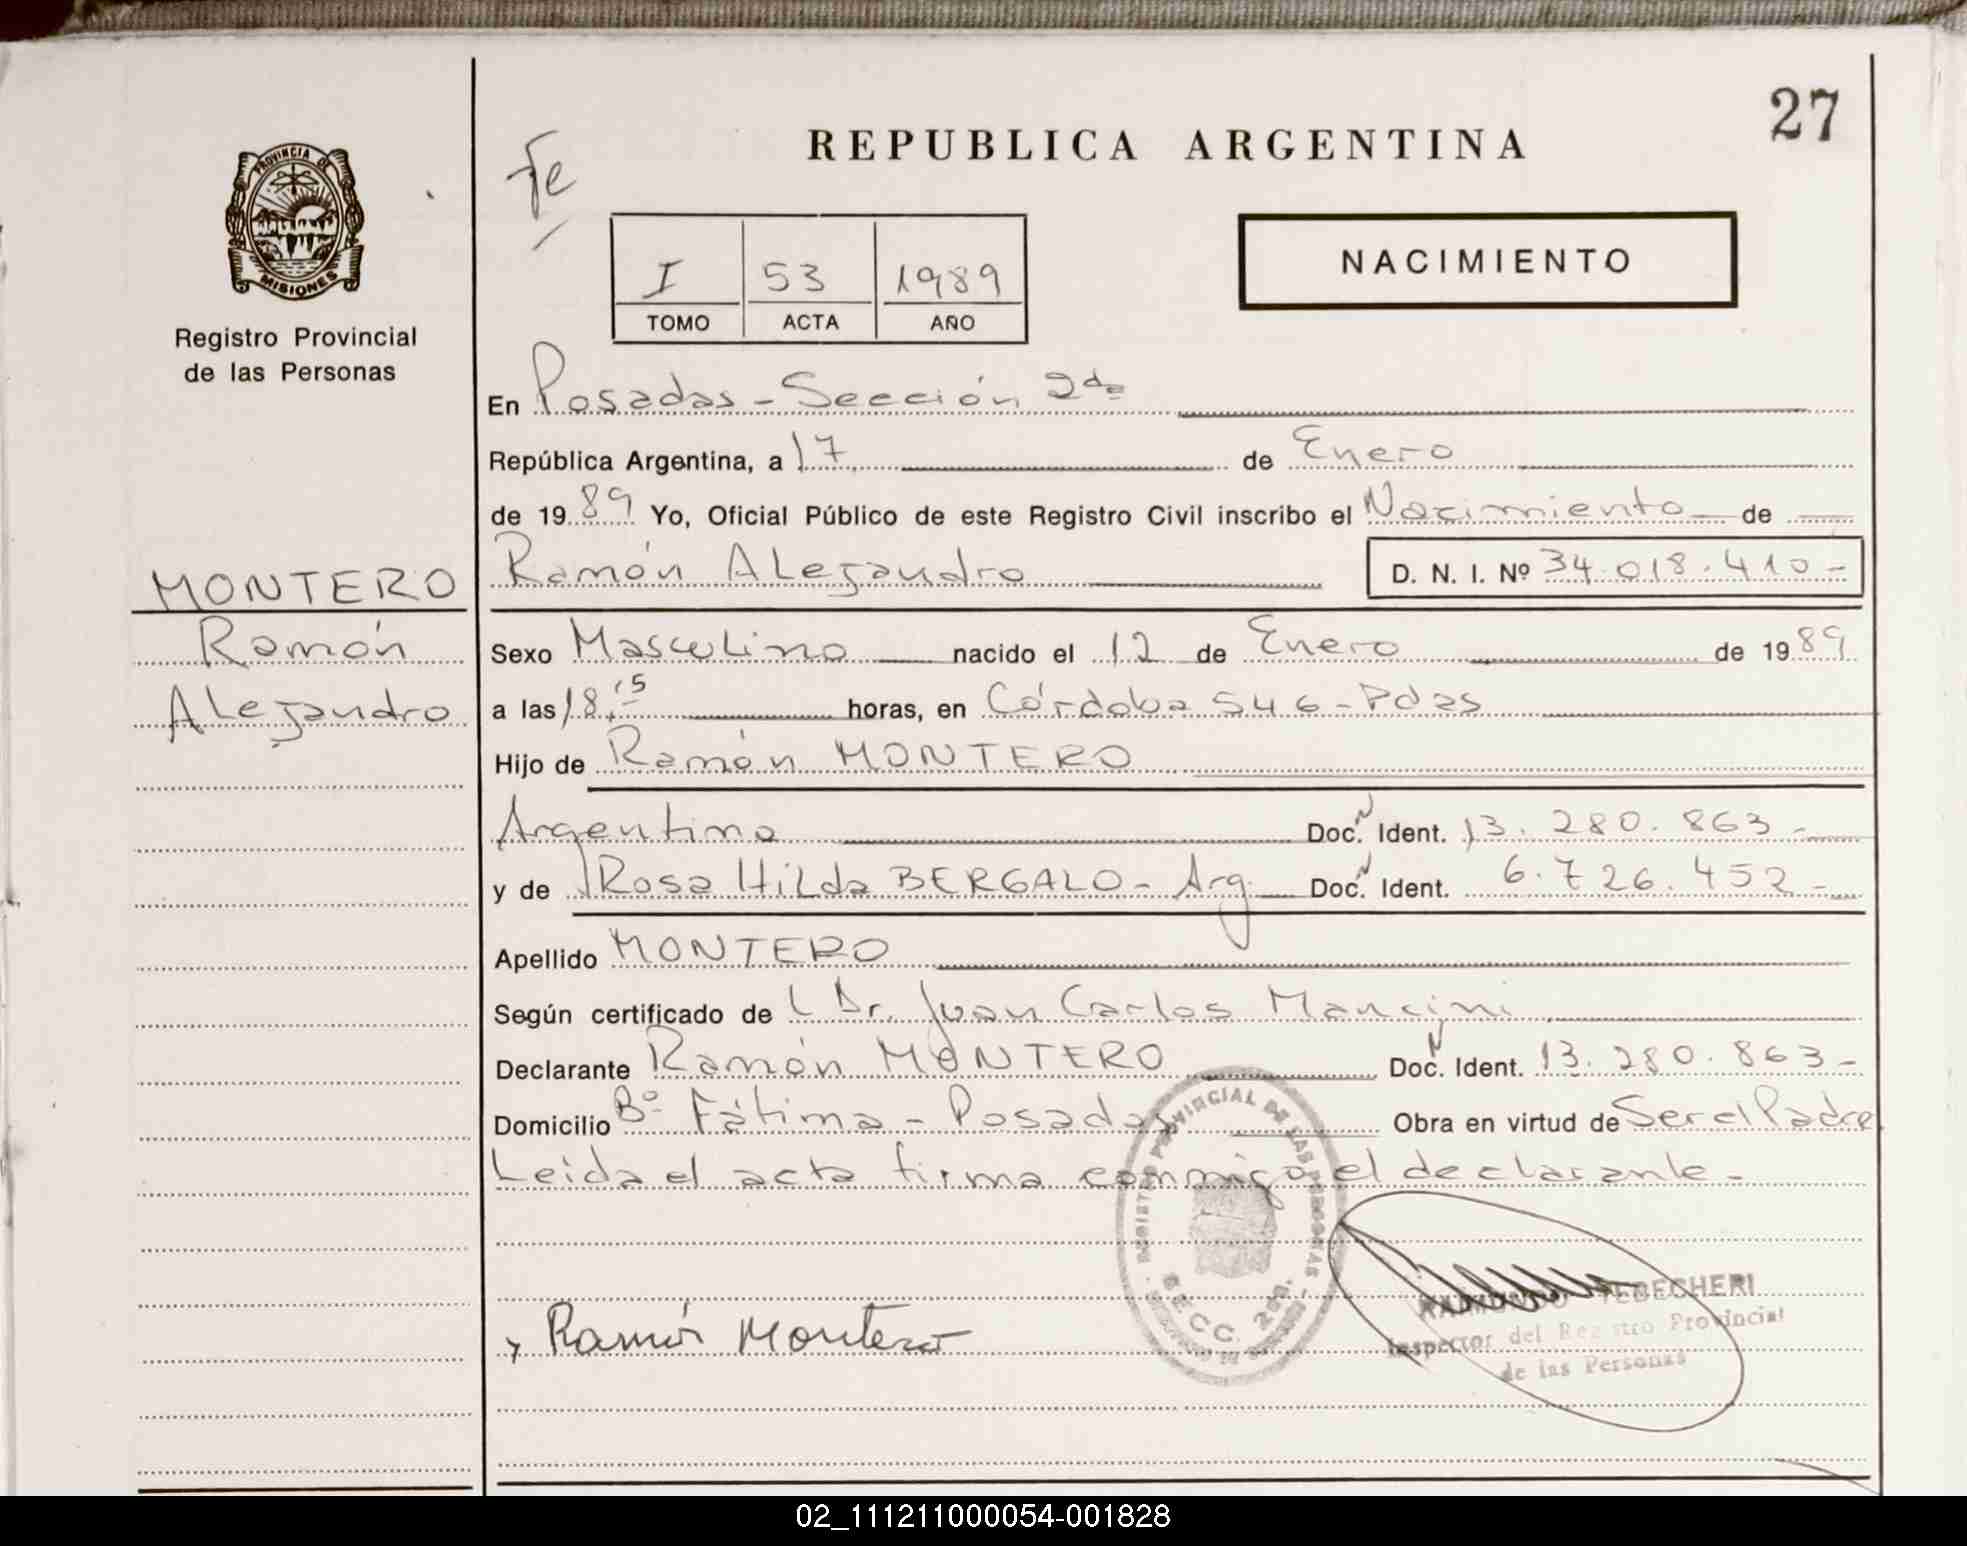 27
REPUBLICA ARGENTINA
PROVINCIA DE
MISIONES
Registro Provincial
de las Personas
Fe
I 53 1989
TOMO ACTA AÑO
NACIMIENTO
En Posadas - Sección 2da
República Argentina, a 17 de Enero
de 1989 Yo, Oficial Público de este Registro Civil inscribo el Nacimiento de
Ramón Alejandro D. N. I. Nº 34.018.410-
MONTERO
Ramón
Alejandro
Sexo Masculino nacido el 12 de Enero de 1989
a las 18,15 horas, en Córdoba 546 - Pdas
Hijo de Ramón MONTERO
Argentino Doc. Ident. 13.280.863-
y de Rosa Hilda BERGALO - Arg. Doc. Ident. 6.726.452-
Apellido MONTERO
Según certificado de Dr. Juan Carlos Mancini
Declarante Ramón MONTERO Doc. Ident. 13.280.863-
Domicilio Bº Fátima - Posadas Obra en virtud de Ser el Padre
Leída el acta firma conmigo el declarante-
REGISTRO PROVINCIAL DE LAS PERSONAS
SECC. 2da.
Ramón Montero
RAIMUNDO TEBECHERI
Inspector del Registro Provincial
de las Personas
02_111211000054-001828